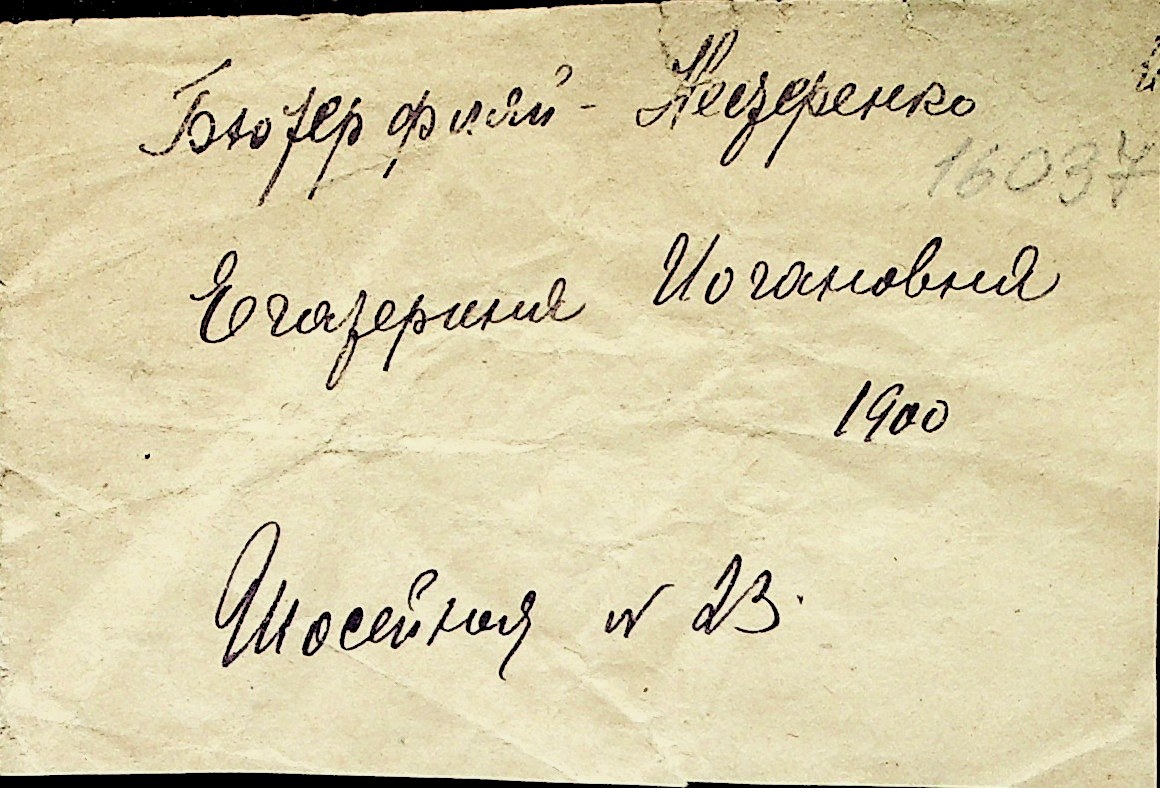 Бютерфляй - Нестеренко
16037
Егатерина Иогановна
1900
Шосейная № 23.